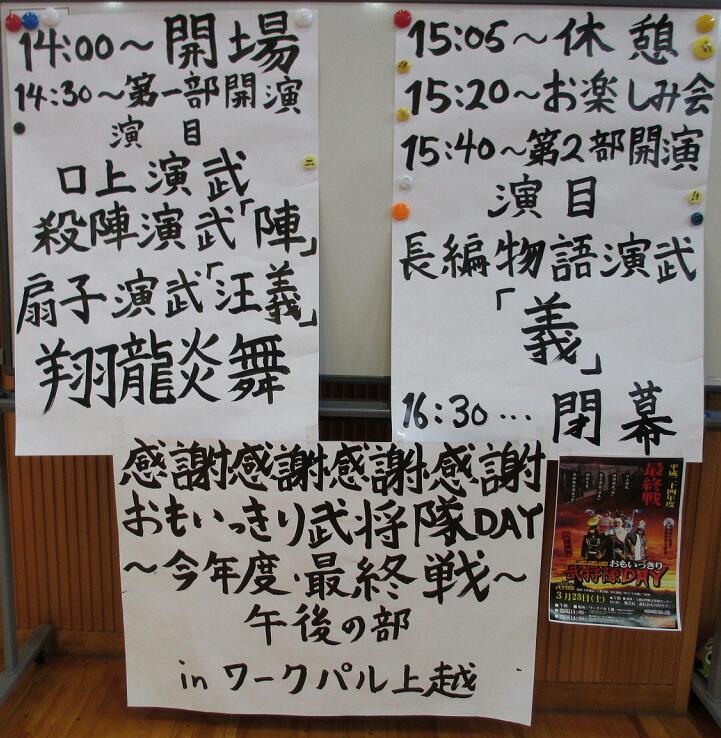 14:00～開場
14:30～第一部開演
演目
口上演武
殺陣演武「陣」
扇子演武「汪義」
翔龍炎舞
15:05～休憩
15:20～お楽しみ会
15:40～第2部開演
演目
長編物語演武
「義」
16:30…閉幕
感謝感謝感謝感謝
おもいっきり武将隊DAY
～今年度・最終戦～
午後の部
inワークパル上越
平成二十四年度
最終戦
おもいっきり
武将隊DAY
3月23日(土)